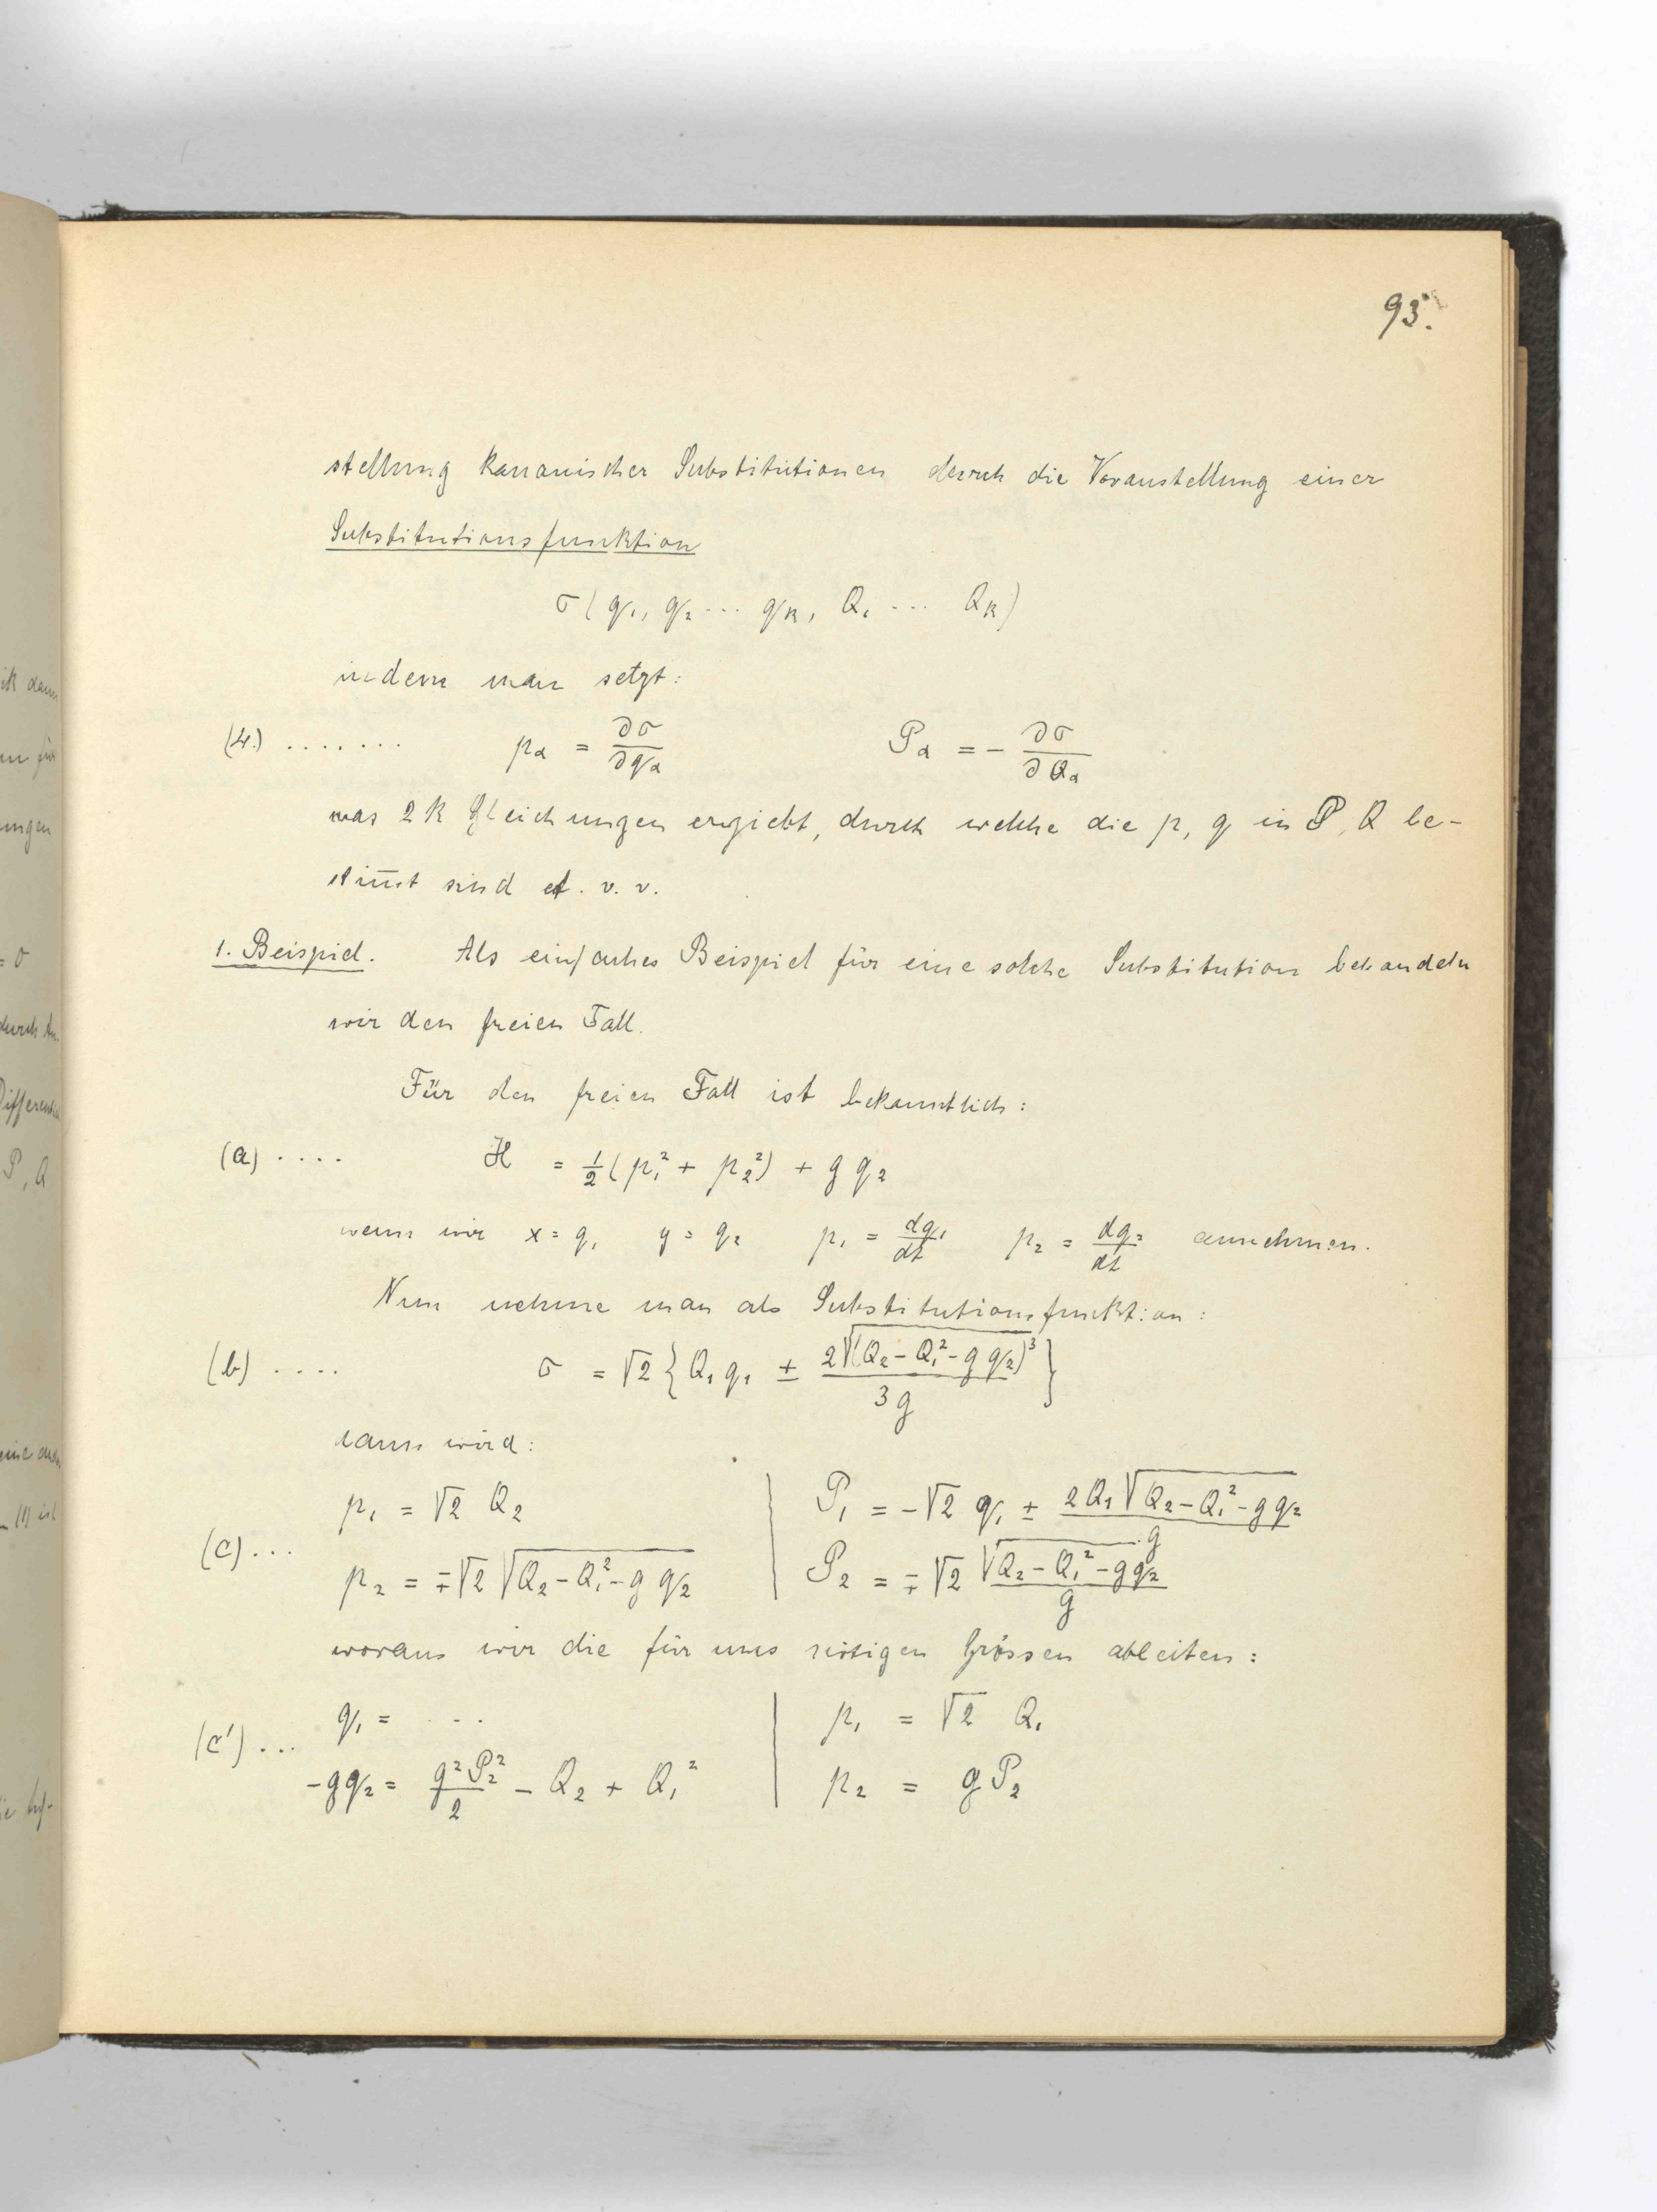 93.
stellung kanonischer Substitutionen durch die Voranstellung einer
Substitutionsfunktion
σ(q₁, q₂ ... q_k, Q₁ ... Q_k)
indem man setzt:
(4.) ....... p_α = ∂σ/∂q_α P_α = - ∂σ/∂Q_α
was 2k Gleichungen ergiebt, durch welche die p, q in P, Q be-
stim̅t sind et. v. v.
1. Beispiel. Als einfaches Beispiel für eine solche Substitution behandeln
wir den freien Fall.
Für den freien Fall ist bekanntlich:
(a) .... H = 1/2 (p₁² + p₂²) + g q₂
wenn wir x = q₁ y = q₂ p₁ = dq₁/dt p₂ = dq₂/dt annehmen.
Nun nehme man als Substitutionsfunktion:
(b) .... σ = √2 {Q₁q₁ ± 2√(Q₂-Q₁²-g q₂)³ / 3g}
dann wird:
p₁ = √2 Q₂ | P₁ = -√2 q₁ ± 2Q₁√(Q₂-Q₁²-gq₂) / g
(c) ... p₂ = ∓√2 √(Q₂-Q₁²-g q₂) | P₂ = ∓√2 √(Q₂-Q₁²-gq₂) / g
woraus wir die für uns nötigen Grössen ableiten:
(c') ... q₁ = ... | p₁ = √2 Q₁
-gq₂ = g²P₂²/2 - Q₂ + Q₁² | p₂ = gP₂
ik dann
ungen
= 0
durch
P, Q